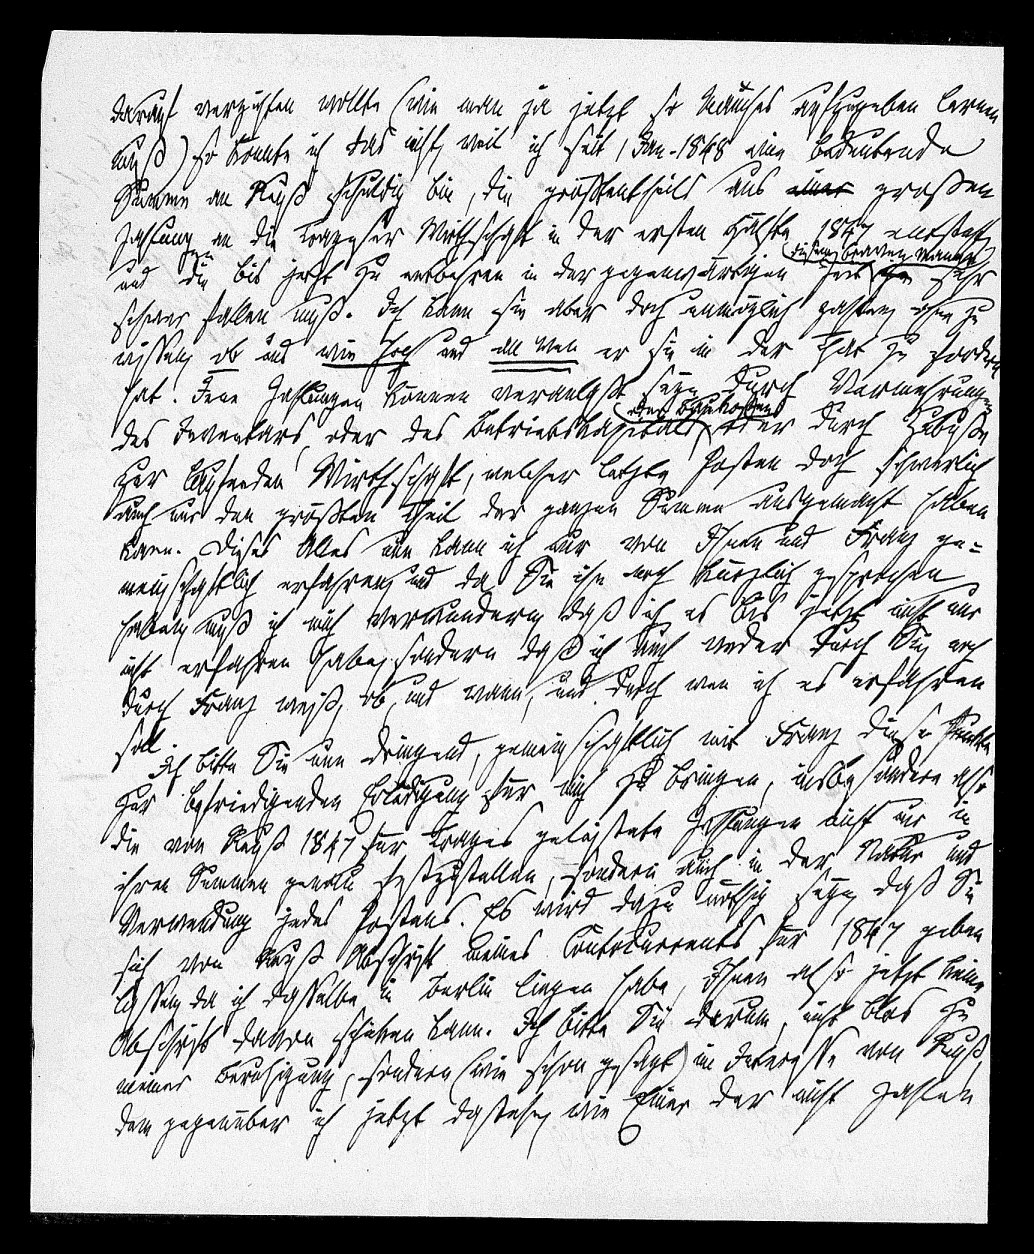 darauf verzichten wollte (wie man ja jetzt so Manches aufzugeben lernen
muß) so konnte ich das nicht, weil ich seit 1 Jan. 1848 eine bedeutende
Summe an Reuß schuldig bin, die größtentheils aus einer großen
Zahlung an die Trageser Wirthschaft in der ersten Hälfte 1847 entsteht
und die bis jetzt zu entbehren in der gegenwärtigen Zeit diesem braven Manne sehr
schwer fallen muß. Ich kann sie aber doch unmöglich zahlen ohne zu
wissen, ob und wie hoch und an wen er sie in der That zu fordern
hat. Jene Zahlungen können veranlaßt seyn durch Vermehrungen
des Inventars, oder des Betriebskapitals, oder Baukosten, oder durch Zubuße
zur laufenden Wirthschaft, welcher letzte Posten doch schwerlich
auch nur den größten Theil der ganzen Summe ausgemacht haben
kann. Dieses Alles nun kann ich nur von Ihnen und Franz ge-
meinschaftlich erfahren, und da Sie ihn noch kürzlich gesprochen
haben, muß ich mich verwundern, daß ich es bis jetzt nicht nur
nicht erfahren habe, sondern daß ich auch weder durch Sie, noch
durch Franz weiß, ob, und wann, und durch wen ich es erfahren
soll.
Ich bitte Sie nun dringend, gemeinschaftlich mit Franz diese Punkte
zur befriedigenden Erledigung für mich zu bringen, insbesondere also
die von Reuß 1847 für Trages geleistete Zahlungen nicht nur in
ihren Summen genau festzustellen, sondern auch in der Natur und
Verwendung jedes Postens. Es wird dazu nöthig seyn, daß Sie
sich von Reuß Abschrift meines Contocurrents für 1847 geben
lassen, da ich dasselbe in Berlin liegen habe, Ihnen also jetzt keine
Abschrift davon schicken kann. Ich bitte Sie darum, nicht blos zu
meiner Beruhigung, sondern (wie schon gesagt) im Interesse von Reuß,
dem gegenüber ich jetzt dastehe, wie Einer der nicht zahlen